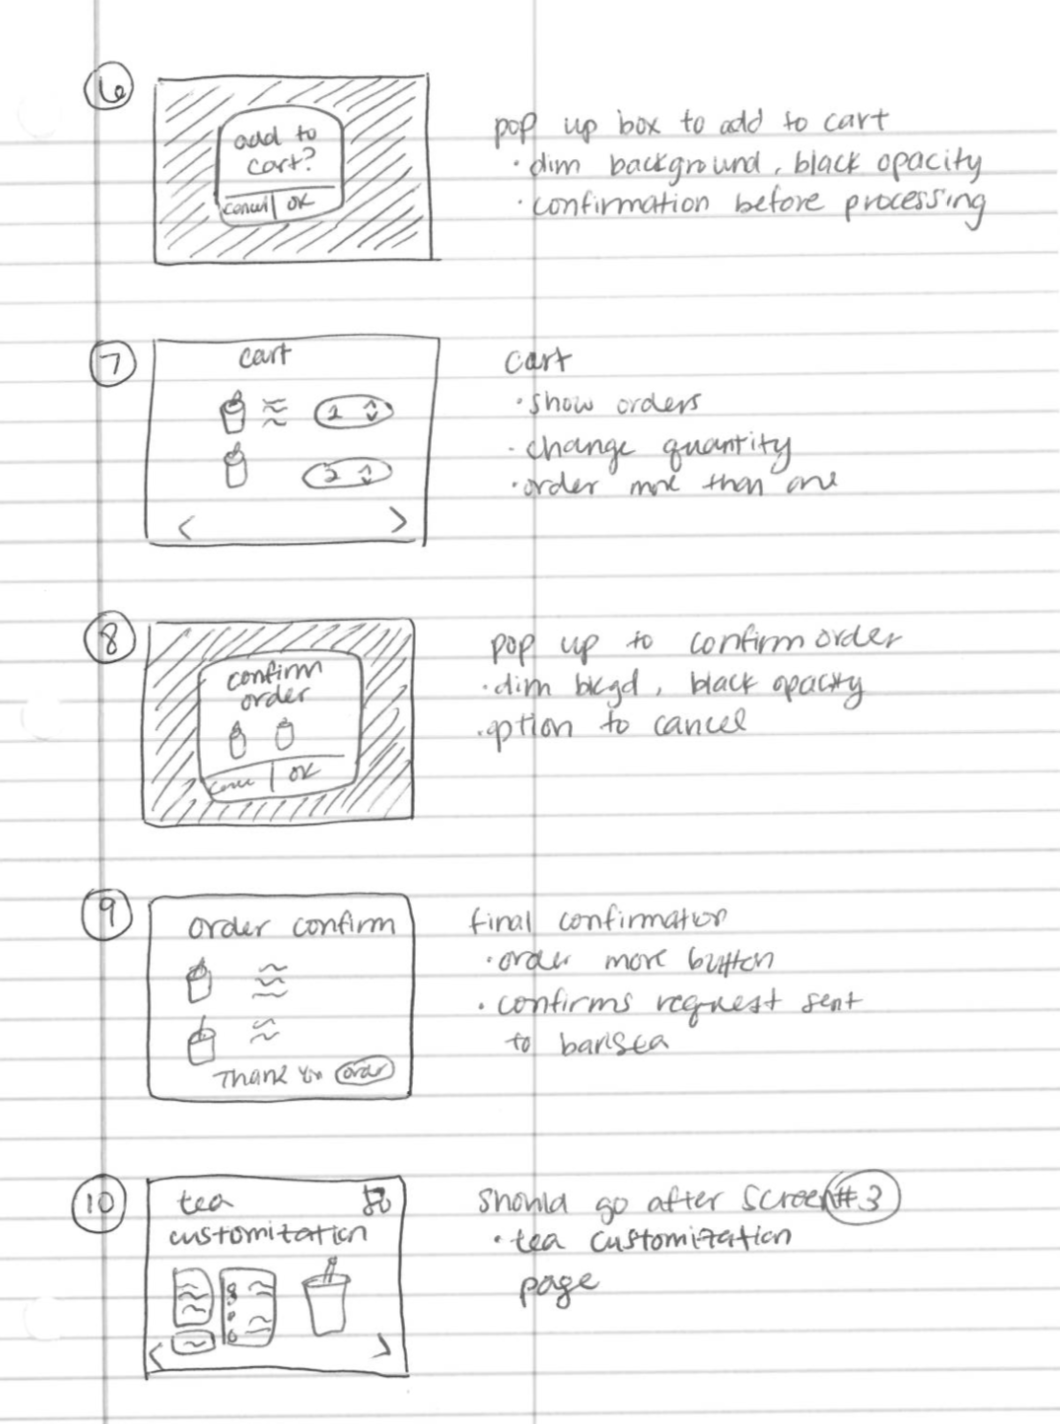 6
add to
cart?
cancel | OK
pop up box to add to cart
· dim background, black opacity
· confirmation before processing
7
cart
2
cart
· show orders
· change quantity
· order more than one
8
confirm
order
cancel | OK
pop up to confirm order
· dim bkgd, black opacity
· option to cancel
9
order confirm
Thank You order
final confirmation
· order more button
· confirms request sent
to barista
10
tea
customization
should go after screen #3
· tea customization
page